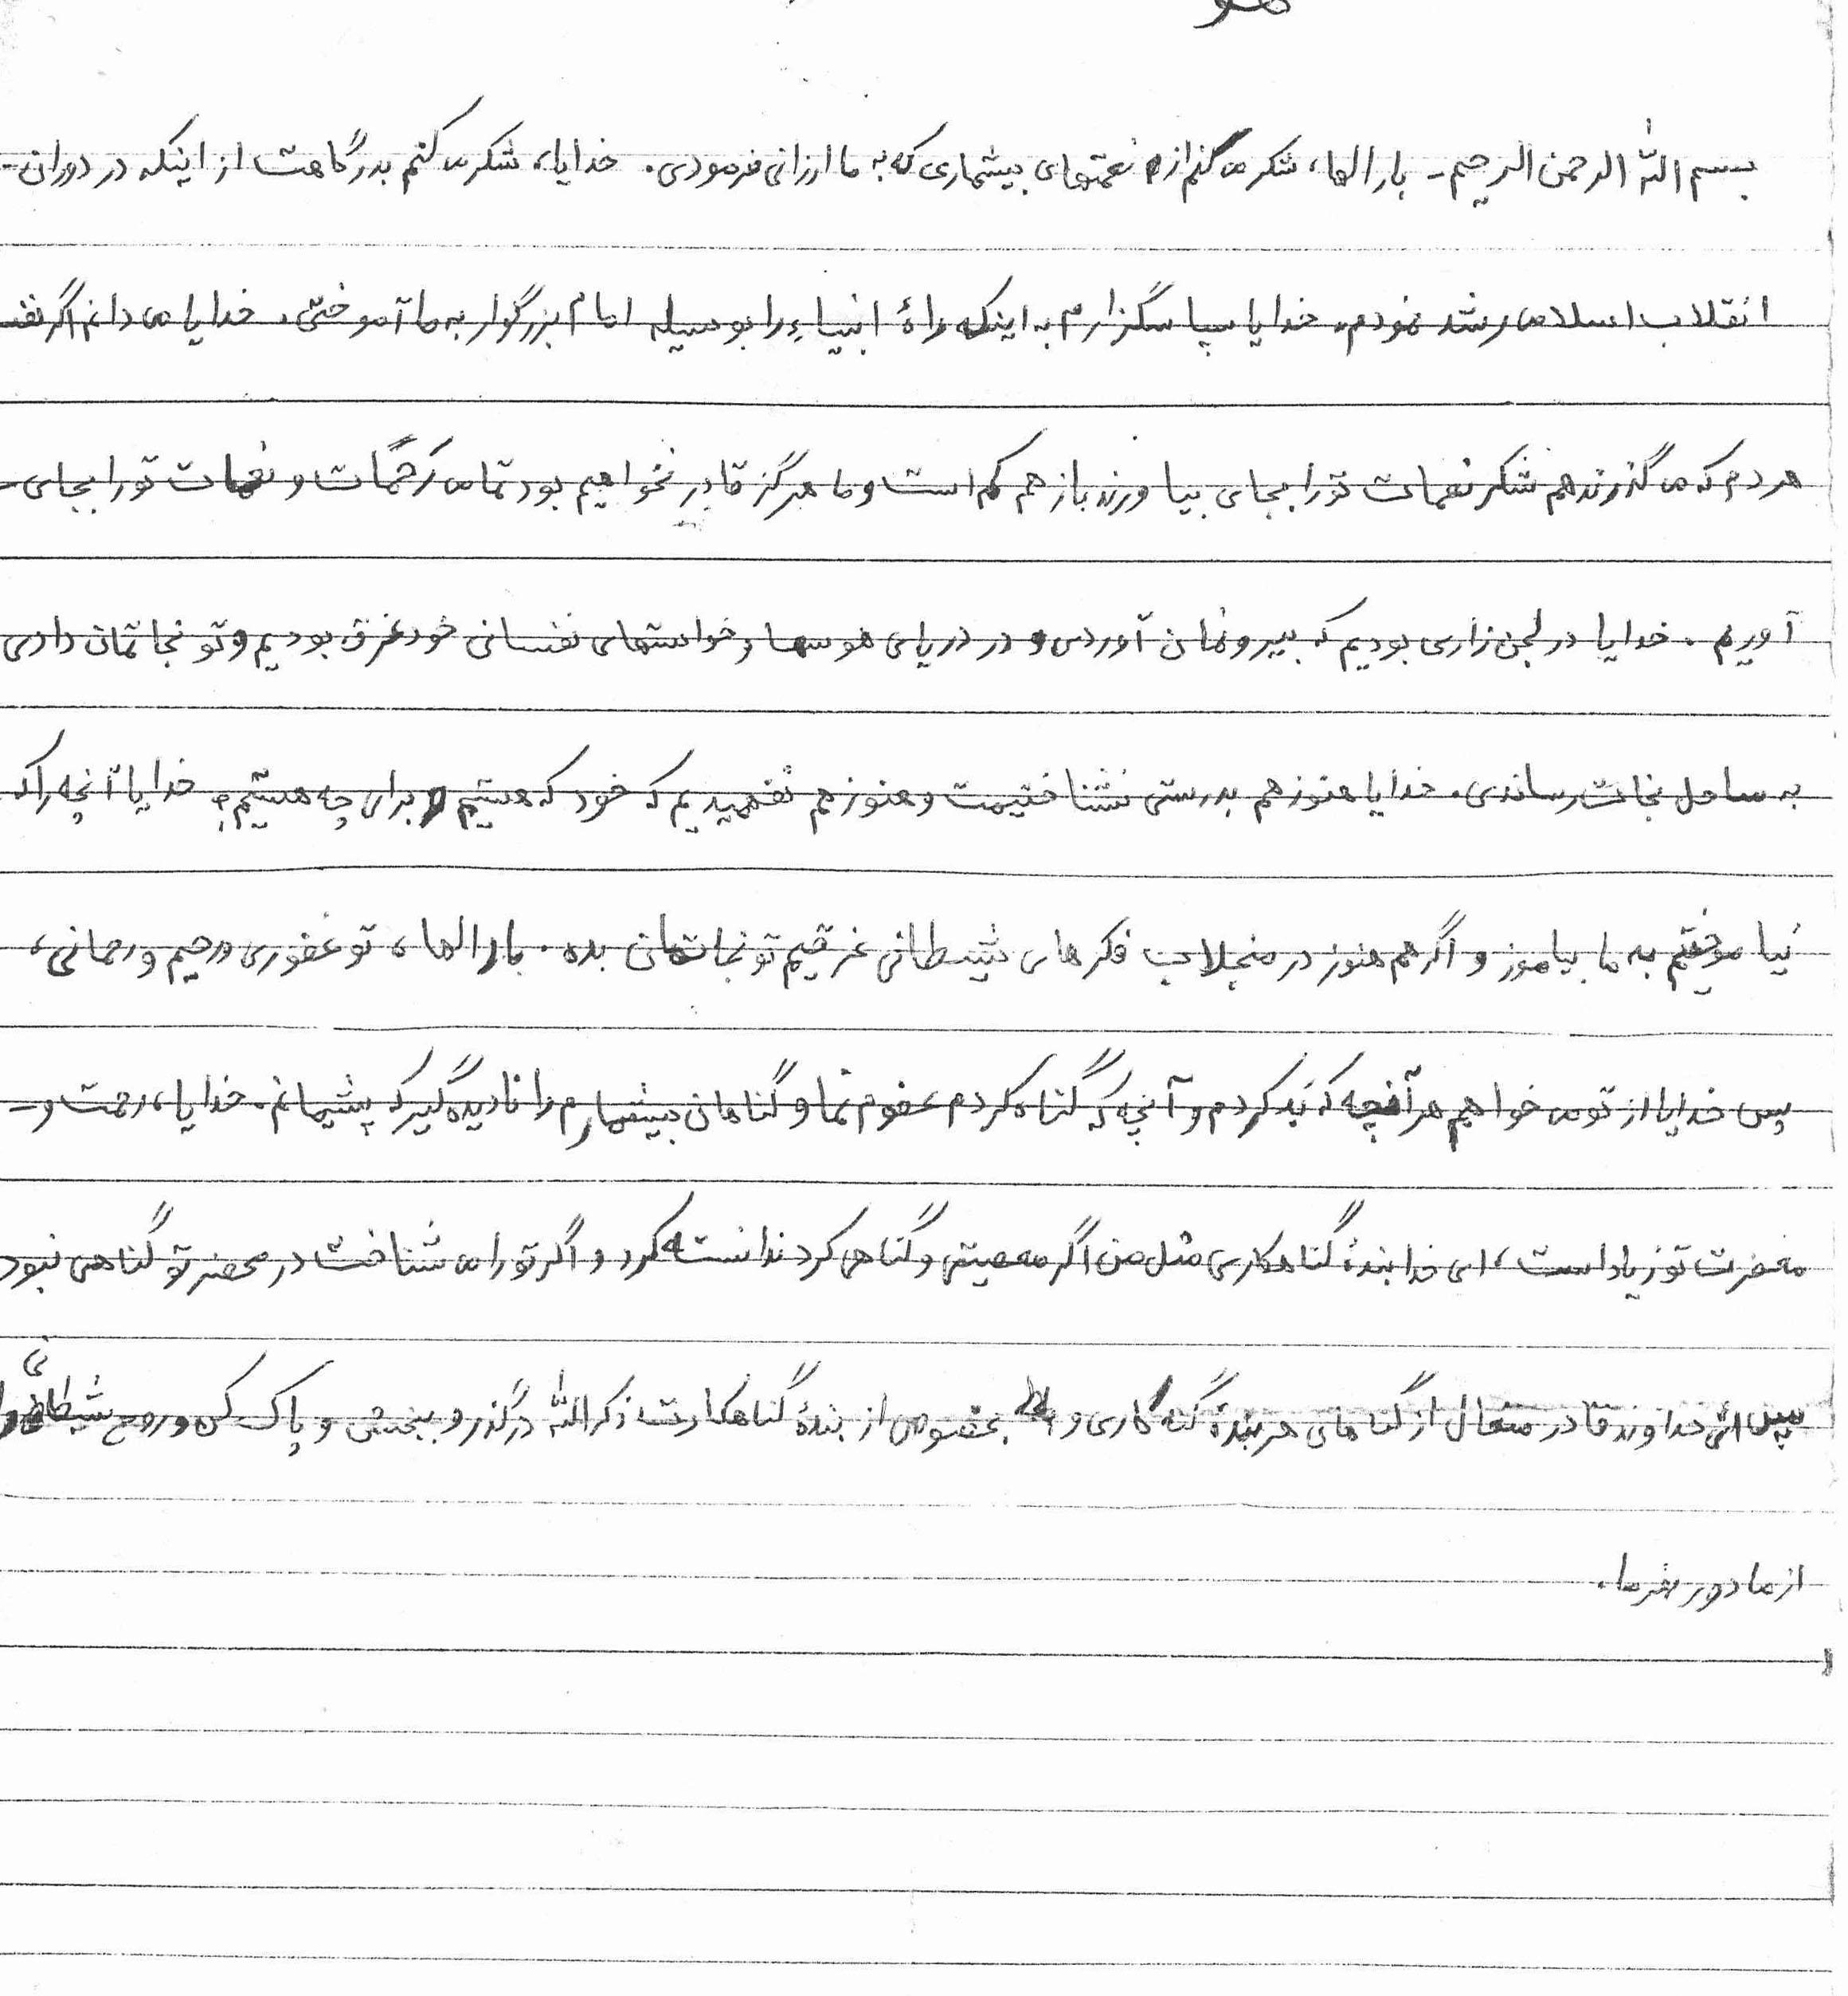 هو
بسم اللّٰه الرحمن الرحیم - بار الها، شکر می گذارم نعمتهای بیشماری که به ما ارزانی فرمودی. خدایا، شکر می کنم بدرگاهت از اینکه در دوران -
انقلاب اسلامی رشد نمودم. خدایا سپاسگزارم به اینکه راهٔ انبیاءِ را بوسیله امام بزرگوار به ما آموختی. خدایا می دانم اگر نفسـ
هر دم که می گذرند هم شکر نعمات تو را بجای بیاورند باز هم کم است و ما هرگز قادر نخواهیم بود تمامی رَحَمات و نعمات تو را بجای -
آوریم. خدایا در لجن زاری بودیم که بیرونمان آوردی و در دریای هوسها و خواستهای نفسانی خود غرق بودیم و تو نجاتمان دادی
به ساحل نجات رساندی. خدایا هنوز هم بدرستی نشناختیمت و هنوز هم نفهمیدیم که خود که هستیم و برای چه هستیم؟ خدایا آنچه را که
نیاموختیم به ما بیاموز و اگر هم هنوز در منجلاب فکرهای شیطانی غرقیم تو نجاتمان بده. بار الها، تو غفوری و رحیم و رحمانی،
پس خدایا از تو می خواهم هر آنچه که بَد کردم و آنچه که گناه کردم عفوم نما و گناهان بیشمارم را نادیده گیر که پشیمانم. خدایا، رحمت و -
مغفرت تو زیاد است، ای خدا بندهٔ گناهکاری مثل من اگر معصیتی و گناهی کرد ندانسته کرد و اگر تو را می شناخت در محضر تو گناهی نبود
پس ای خداوند قادر متعال از گناهای هر بندهٔ گنه کاری و بخصوص از بندهٔ گناهکارت ذکر اللّٰه درگذر و ببخش و پاک کن و روح شیطانی را
از ما دور بفرما.